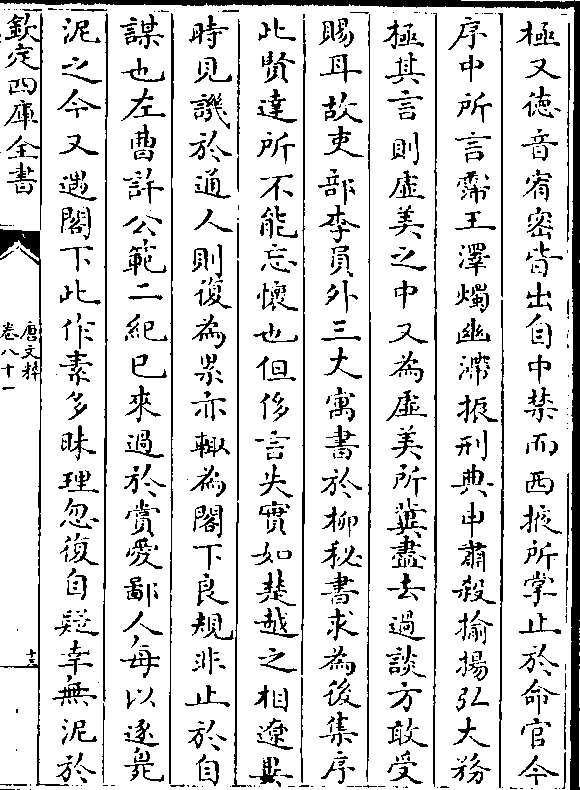 極又德音宥密皆出自中禁而西掖所掌止於命官今
序中所言霈王澤燭幽滯振刑典申肅殺揄揚弘大務
極其言則虛美之中又為虛美所冀盡去過談方敢受
賜耳故吏部李員外三大寓書於柳秘書求為後集序
此賢達所不能忘懷也但侈言失實如楚越之相遼異
時見譏於通人則復為累亦輙為閣下良規非止於自
謀也左曹許公範二紀已來過於賞愛鄙人每以逐臭
泥之今又遇閣下此作素多昧理忽復自疑幸無泥於
欽定四庫全書
唐文粹
卷八十一
十三